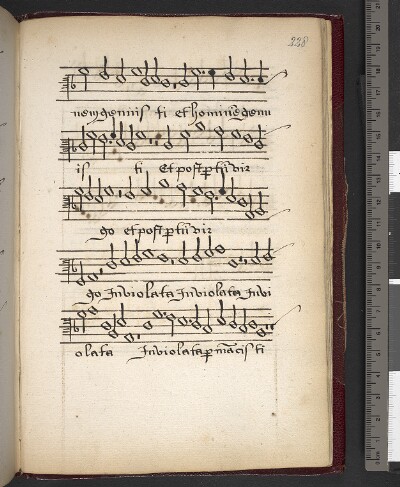 228
nem genuis ti et hominē genu
is ti Et post ptū vir
go et post ptū vir
go Inviolata Inviolata Invi
olata Inviolata pmācis ti